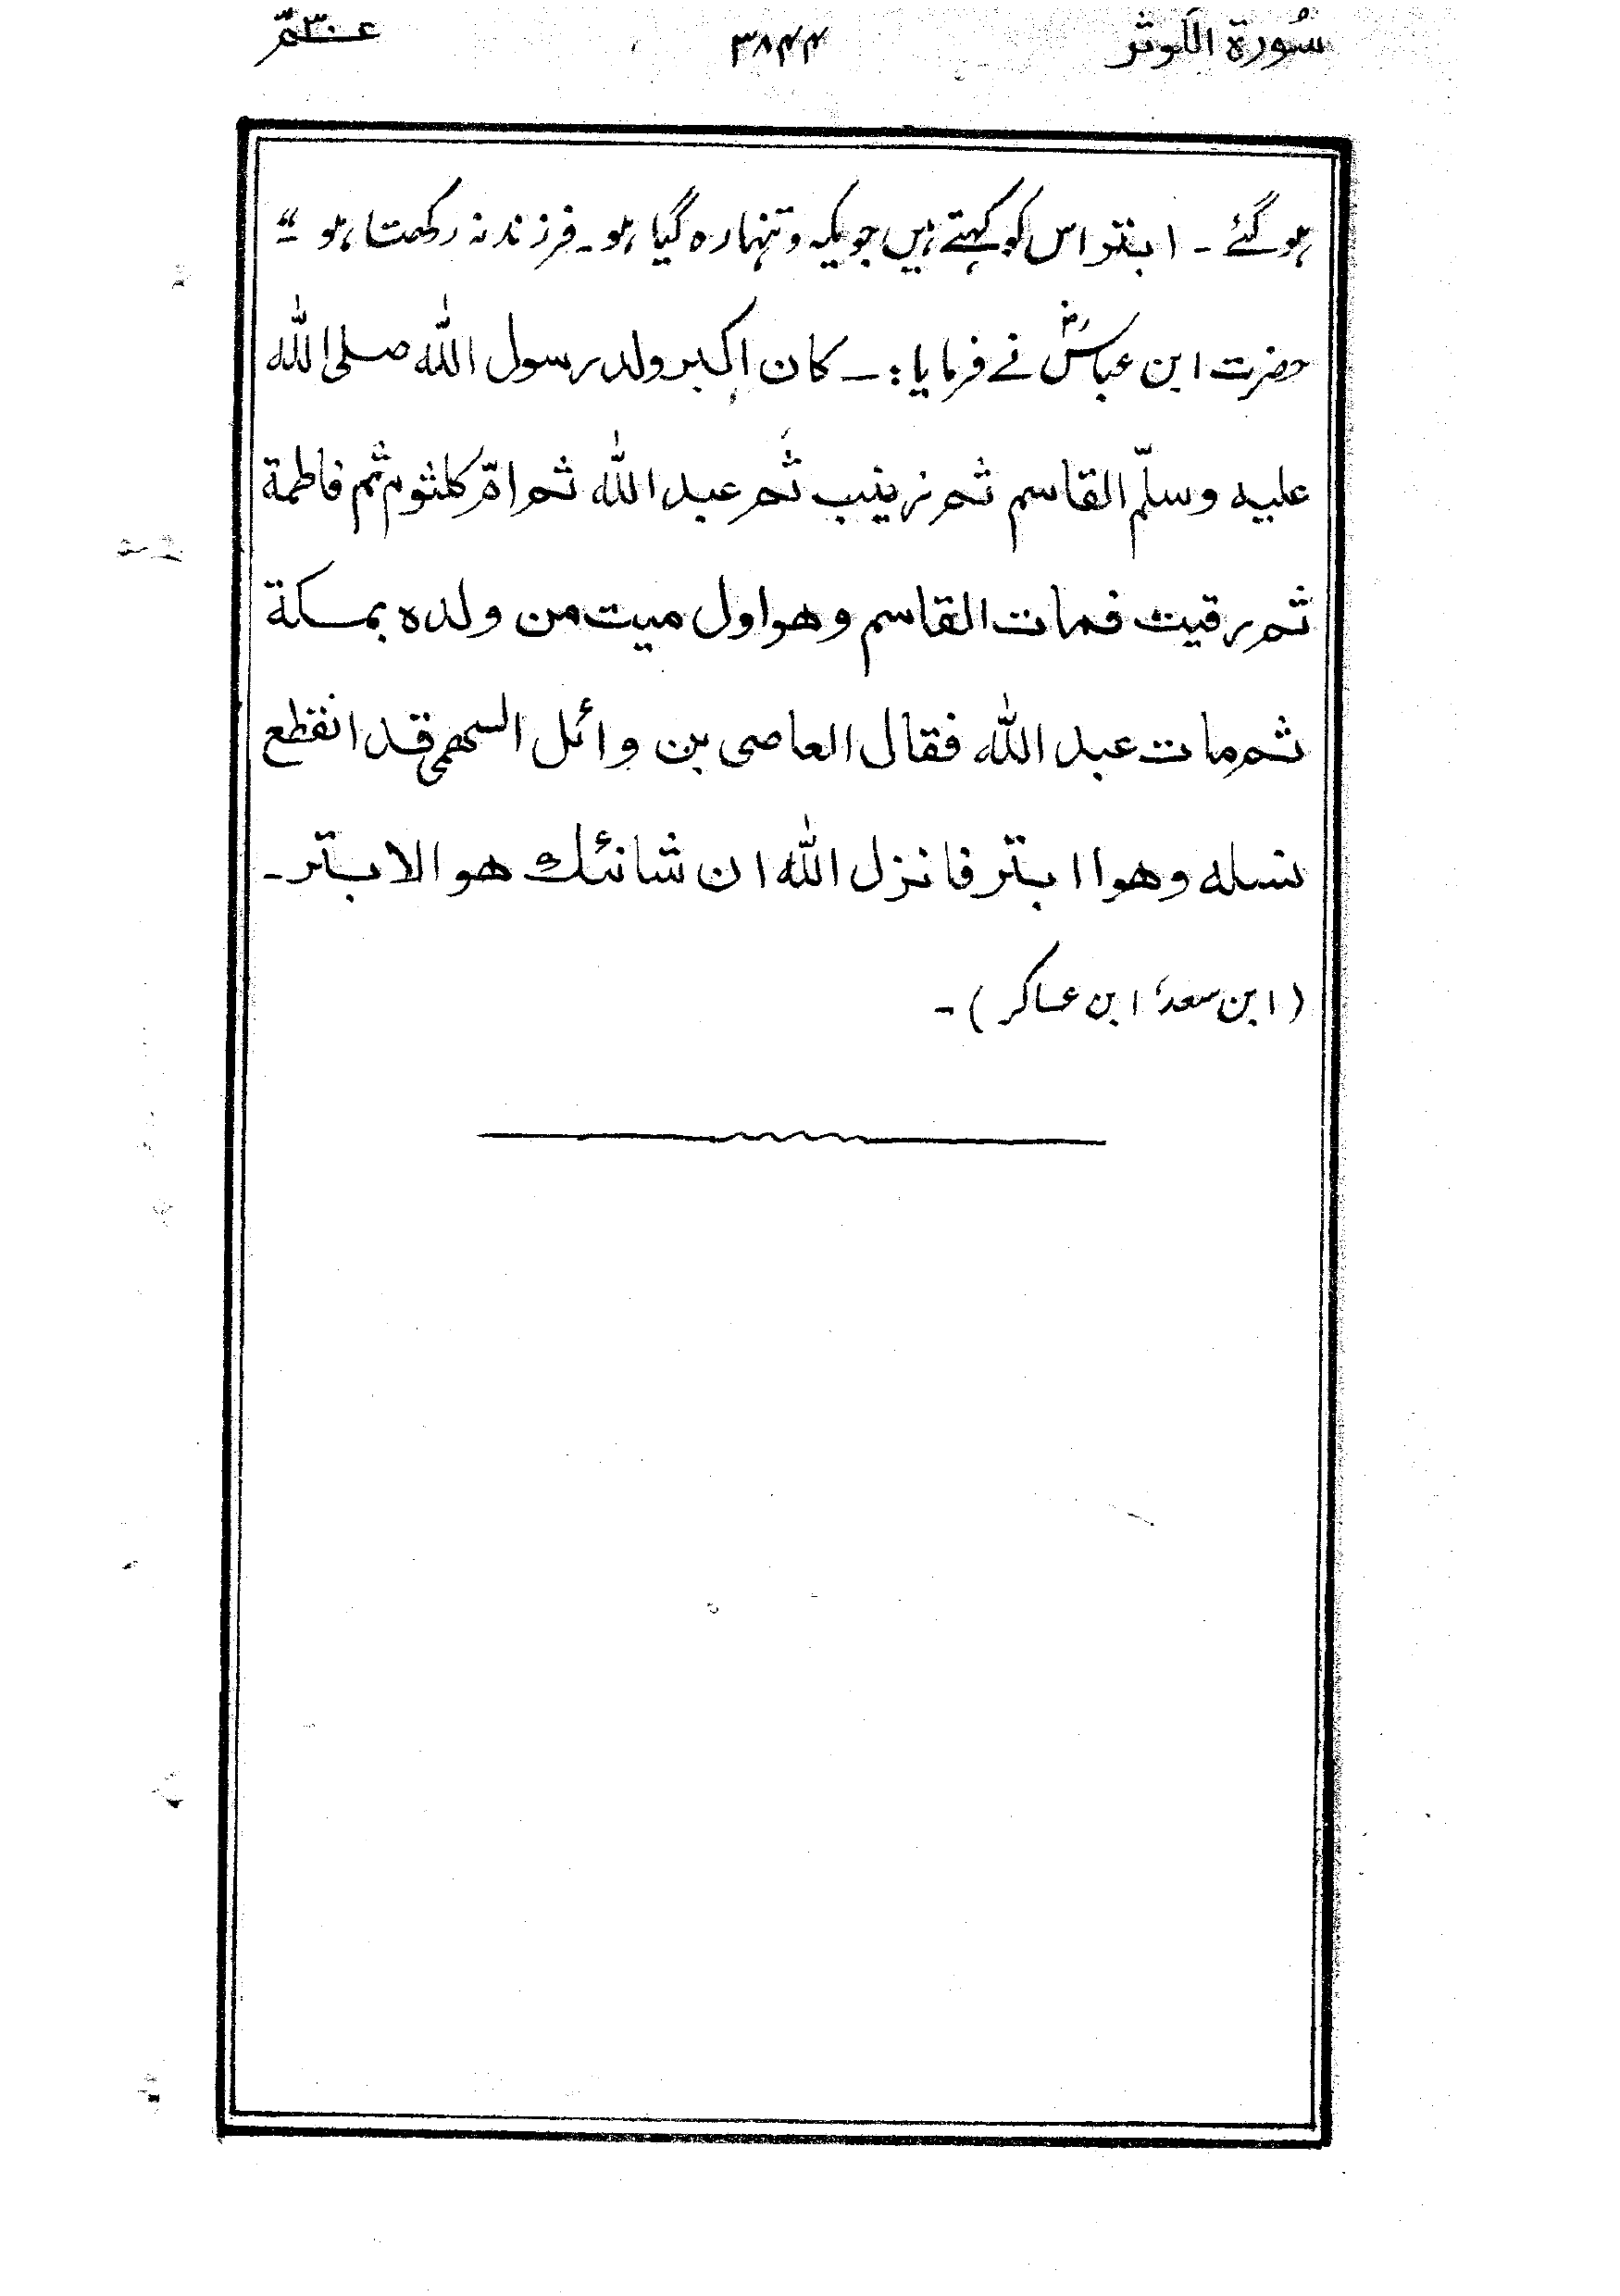 سُورة الكوثر
۳۸۴۴
عم ۳۰
ہو گئے ۔ ابتر اس کو کہتے ہیں جو یکہ و تنہا رہ گیا ہو ۔ فرزند نہ رکھتا ہو ۔"
حضرت ابن عباسؓ نے فرمایا :۔ كان اكبر ولد رسول الله صلى الله
عليه وسلّم القاسم ثم زينب ثم عبد الله ثم امّ كلثوم ثم فاطمة
ثم رقيت فمات القاسم وهو اول ميت من ولده بمكة
ثم مات عبد الله فقال العاصى بن وائل السهمى قد انقطع
نسله وهوا ابتر فانزل الله ان شانئك هو الابتر ۔
(ابن سعد، ابن عساکر) ۔